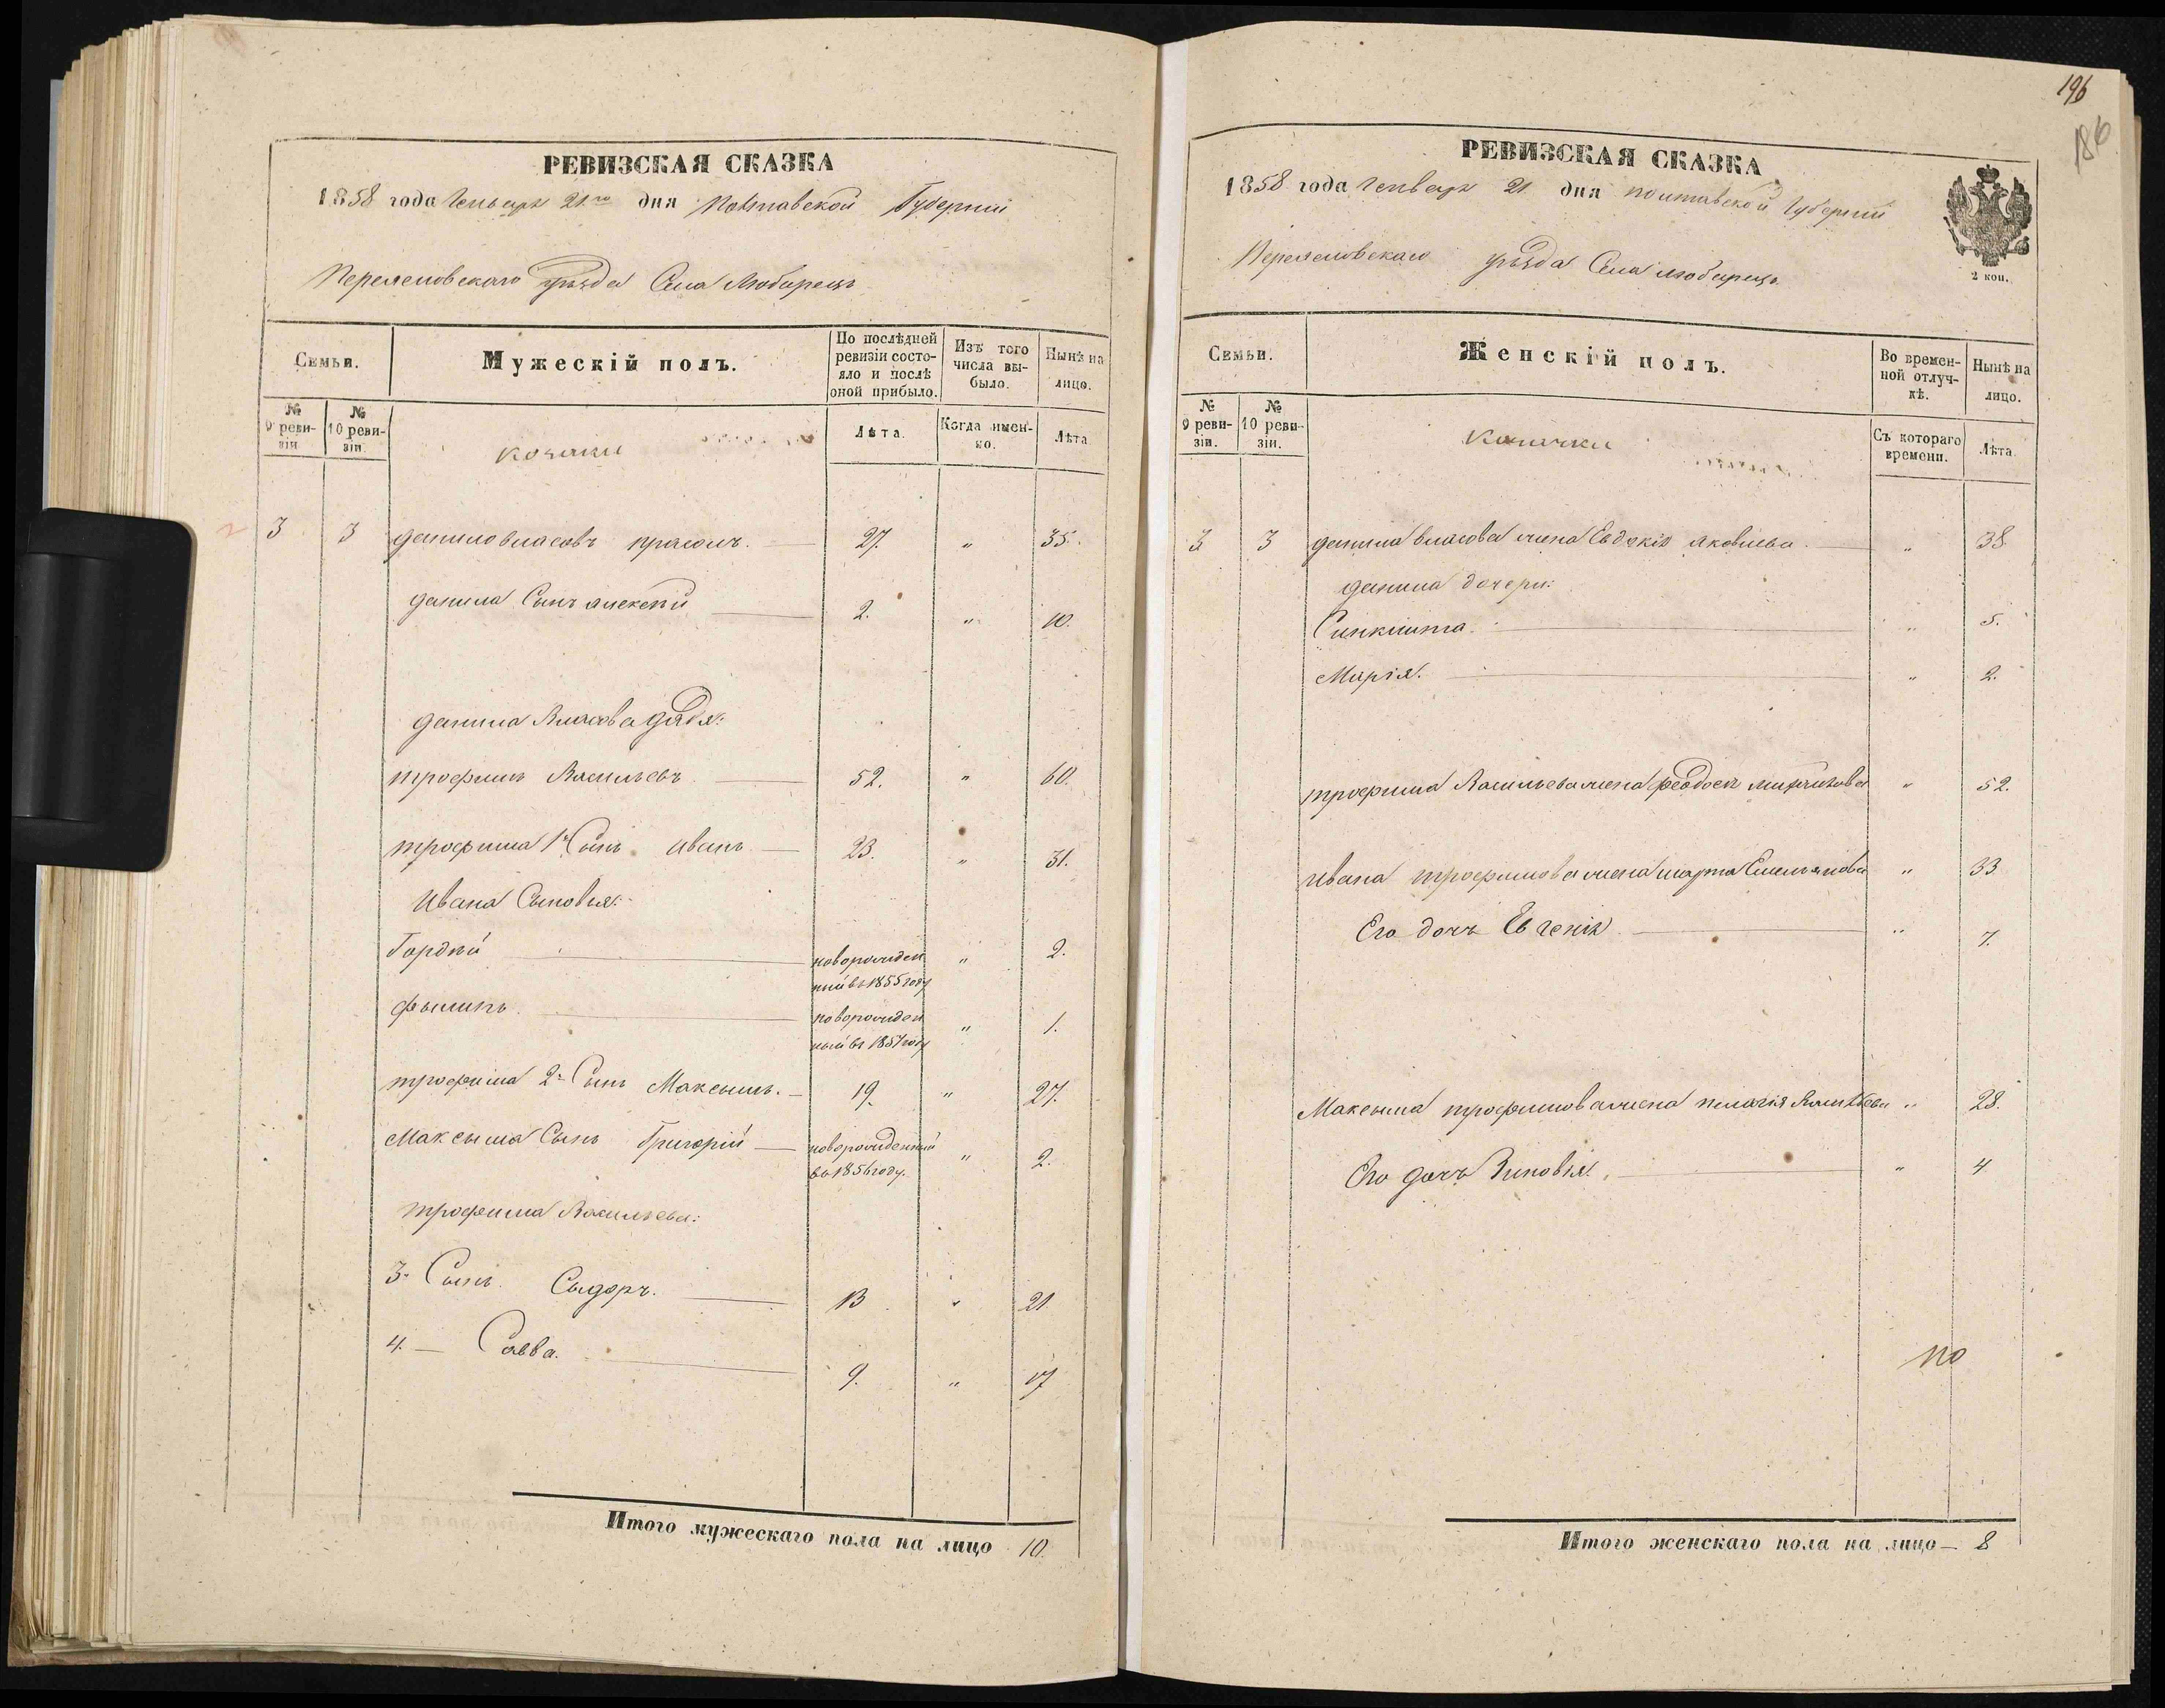 196
186
РЕВИЗСКАЯ СКАЗКА
1858 года Генваря 21го дня Полтавской Губернии
Переяславского уезда Села Любарецъ
Семьи.
Мужескій полъ.
По послѣдней ревизіи состояло и послѣ оной прибыло.
Изъ того числа выбыло.
Нынѣ на лицо.
№ 9 ревизіи.
№ 10 ревизіи.
козаки
Лѣта.
Когда именно.
Лѣта
3 3 Данило Власовъ 27. " 35.
Данила Сынъ Алексѣй 2. " 10.
Данила Власова дядя:
Трофимъ Васильевъ 52. " 60.
Трофима 1й Сынъ Иванъ 23. " 31.
Ивана Сыновья:
Гордѣй новорожденный въ 1855 году " 2.
Фылипъ. новорожденный въ 1857 году " 1.
Трофима 2й Сынъ Максымъ. 19. " 27.
Максыма Сынъ Григорій новорожденный въ 1856 году. " 2.
Трофима Васильева:
3й Сынъ. Сыдоръ. 13. " 21
4. — Савва. 9. " 17
Итого мужескаго пола на лицо 10.
РЕВИЗСКАЯ СКАЗКА
1858 года Генваря 21 дня Полтавской Губернии
2 коп.
Переяславского уезда Села Любарецъ
Семьи.
Женскій полъ.
Во временной отлучкѣ.
Нынѣ на лицо.
№ 9 ревизіи.
№ 10 ревизіи.
Козачки
Съ котораго времени.
Лѣта.
3 3 Данила Власова жена Евдокія Яковлева. " 38
Данила дочери:
Синклита. " 5.
Марія. " 2.
Трофима Васильева жена Феодосія " 52.
Ивана Трофимова жена Марта Емельянова " 33
Его дочь Евгенія " 7.
Максыма Трофимова жена Пелагія " 28.
Его дочь Зиновія. " 4
Итого женскаго пола на лицо — 8